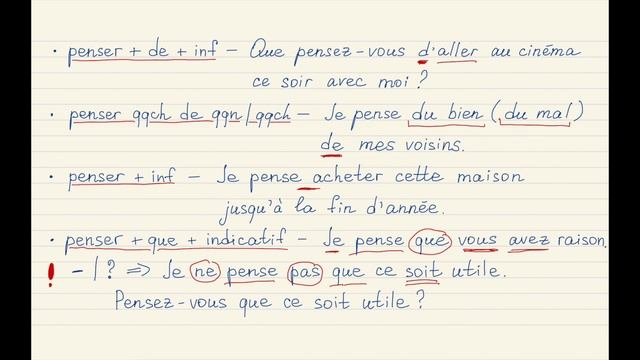 · penser + de + inf – Que pensez-vous d'aller au cinéma
ce soir avec moi ?
· penser qqch de qqn / qqch – Je pense du bien (du mal)
de mes voisins.
· penser + inf – Je pense acheter cette maison
jusqu'à la fin d'année.
· penser + que + indicatif – Je pense que vous avez raison.
! – / ? => Je ne pense pas que ce soit utile.
Pensez-vous que ce soit utile ?